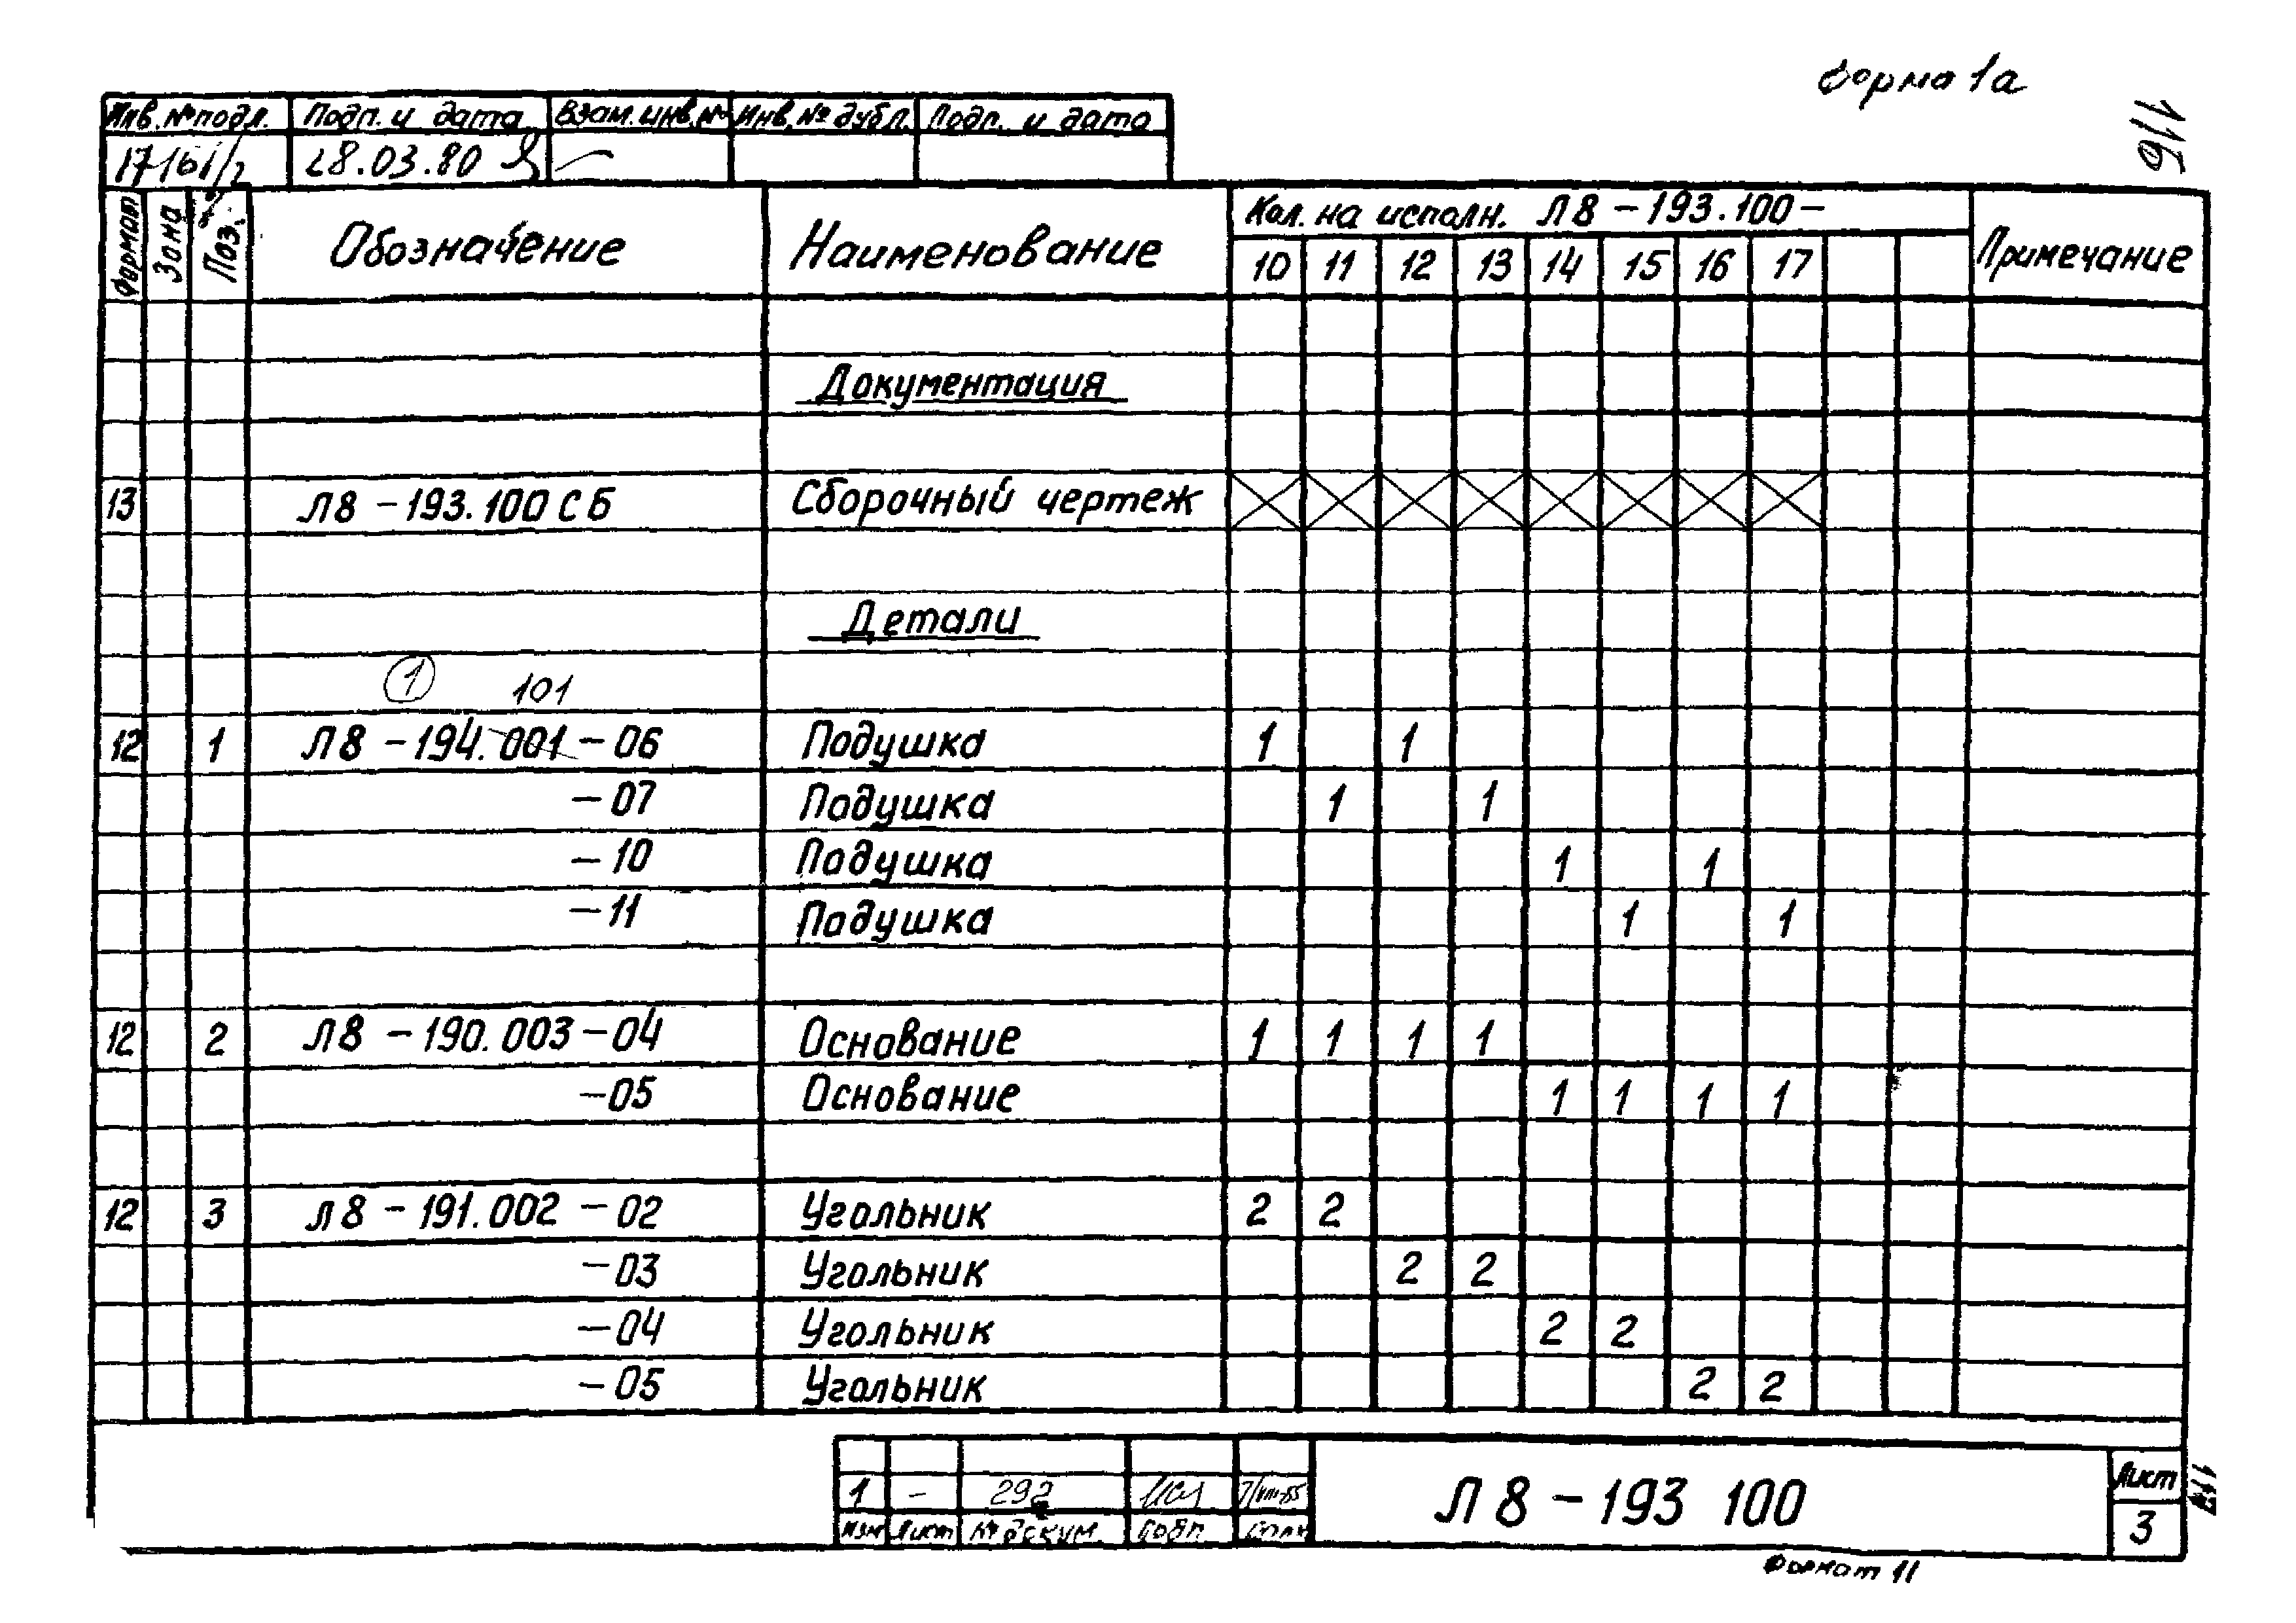 Форма 1а
116
Инв. № подл. Подп. и дата Взам. инв. № Инв. № дубл. Подп. и дата
17161/2 28.03.80 —
Формат Зона Поз. Обозначение Наименование Кол. на исполн. Л8-193.100- Примечание
10 11 12 13 14 15 16 17
Документация
13 Л8-193.100 СБ Сборочный чертеж
Детали
1 101
12 1 Л8-194.001-06 Подушка 1 1
-07 Подушка 1 1
-10 Подушка 1 1
-11 Подушка 1 1
12 2 Л8-190.003-04 Основание 1 1 1 1
-05 Основание 1 1 1 1
12 3 Л8-191.002-02 Угольник 2 2
-03 Угольник 2 2
-04 Угольник 2 2
-05 Угольник 2 2
1 - 292
Изм Лист № докум. Подп.
Л8-193 100
Лист
3
Формат 11